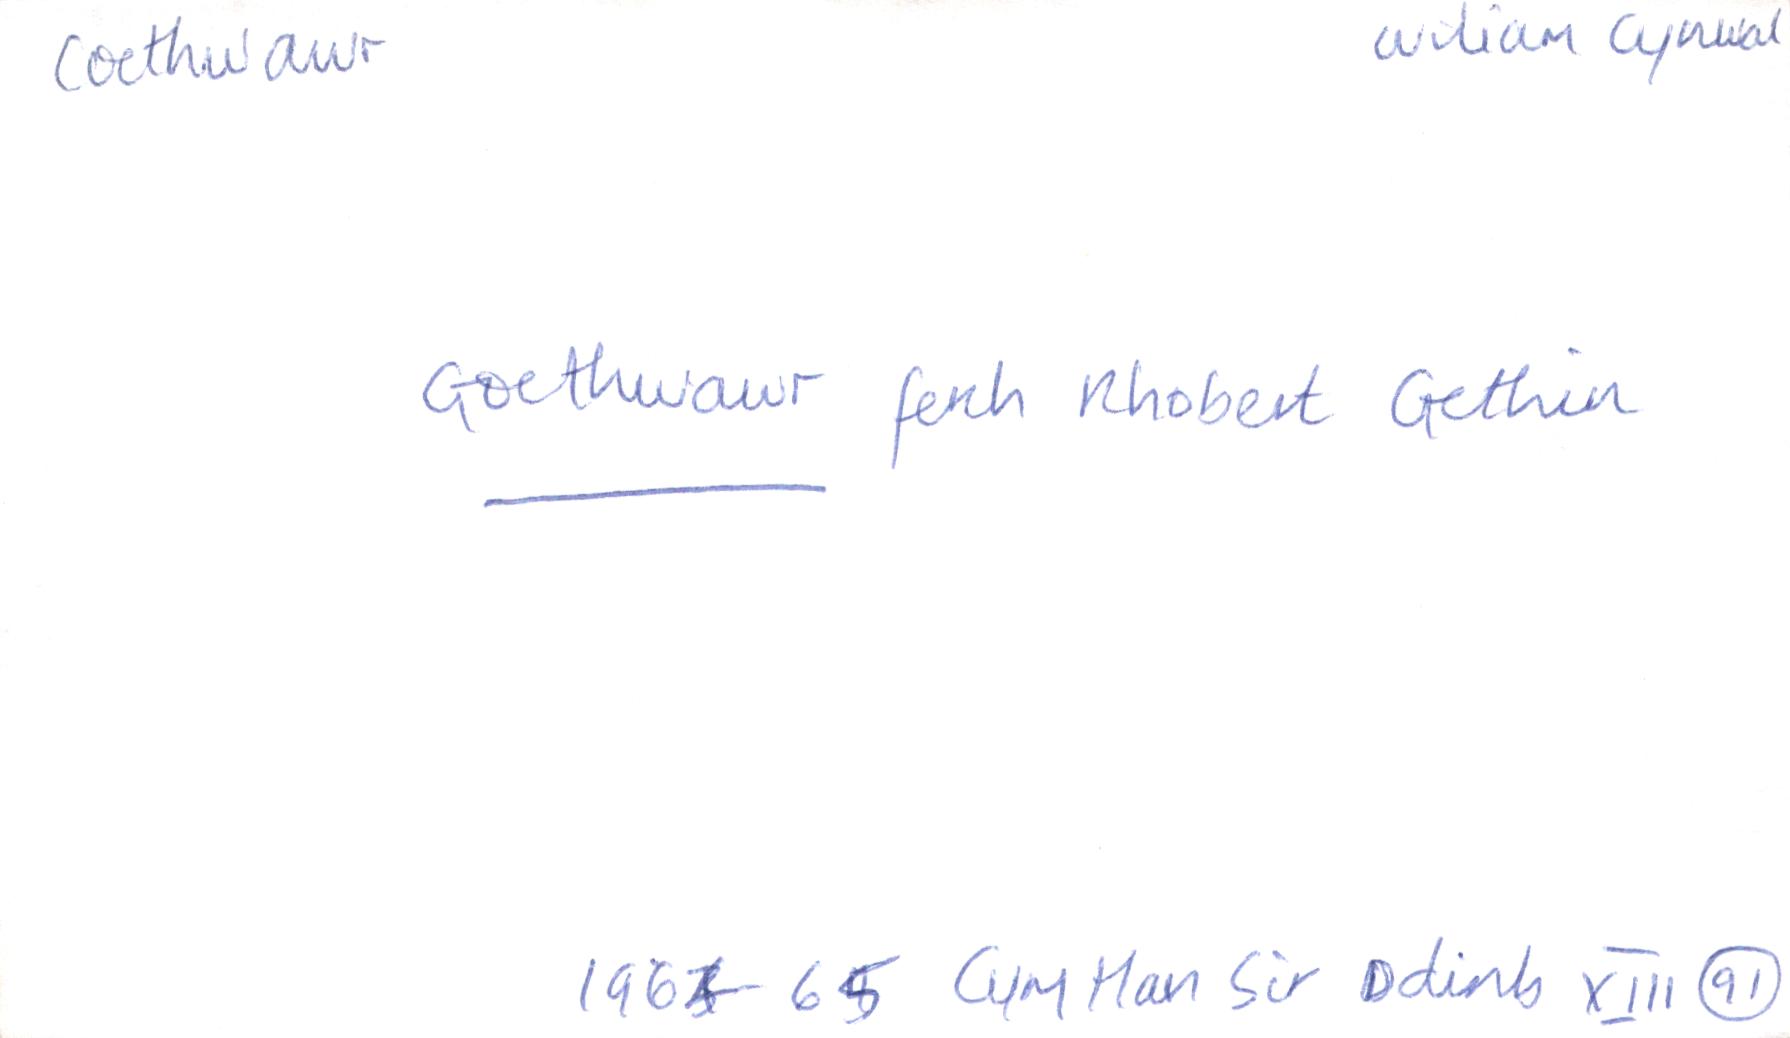 Coethwawr Wiliam Cynwal
Goethwawr ferch Rhobert Gethin
65 Cym Han Sir Ddinb XIII 91